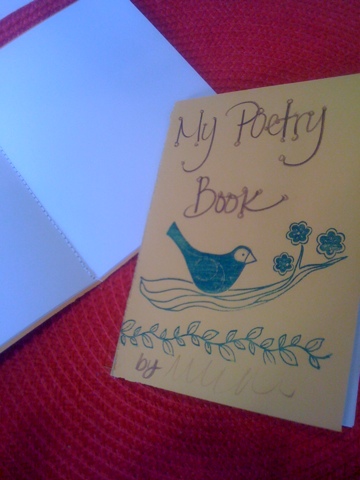 My Poetry
Book
by